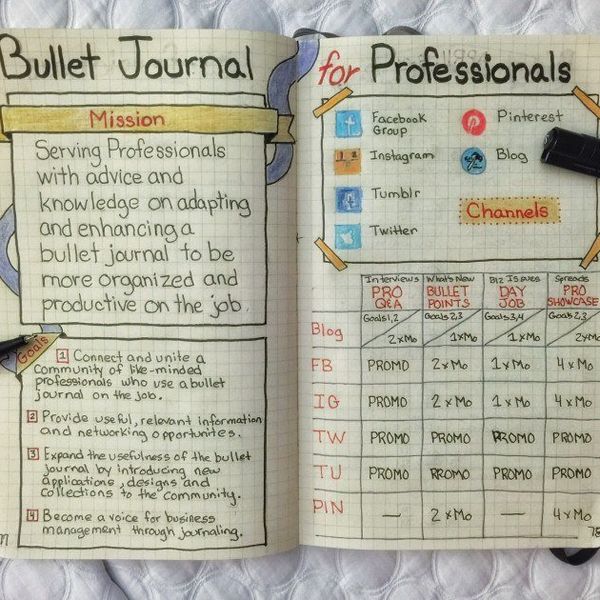 Bullet Journal
Mission
Serving Professionals
with advice and
knowledge on adapting
and enhancing a
bullet journal to be
more organized and
productive on the job
Goals
1 Connect and unite a
community of like-minded
professionals who use a bullet
journal on the job.
2 Provide useful, relevant information
and networking opportunites.
3 Expand the usefulness of the bullet
journal by introducing new
applications, designs and
collections to the community.
4 Become a voice for business
management through journaling.
for Professionals
Facebook
Group
Pinterest
Instagram
Blog
Tumblr
Channels
Twitter
Interviews What's New Biz Issues Spreads
PRO BULLET DAY PRO
Q&A POINTS JOB SHOWCASE
Blog Goals 1,2 Goals 2,3 Goals 3,4 Goals 2,3
2xMo 1xMo 1xMo 2xMo
FB PROMO 2xMo 1xMo 4xMo
IG PROMO 2xMo 1xMo 4xMo
TW PROMO PROMO PROMO PROMO
TU PROMO PROMO PROMO PROMO
PIN — 2xMo — 4xMo
78